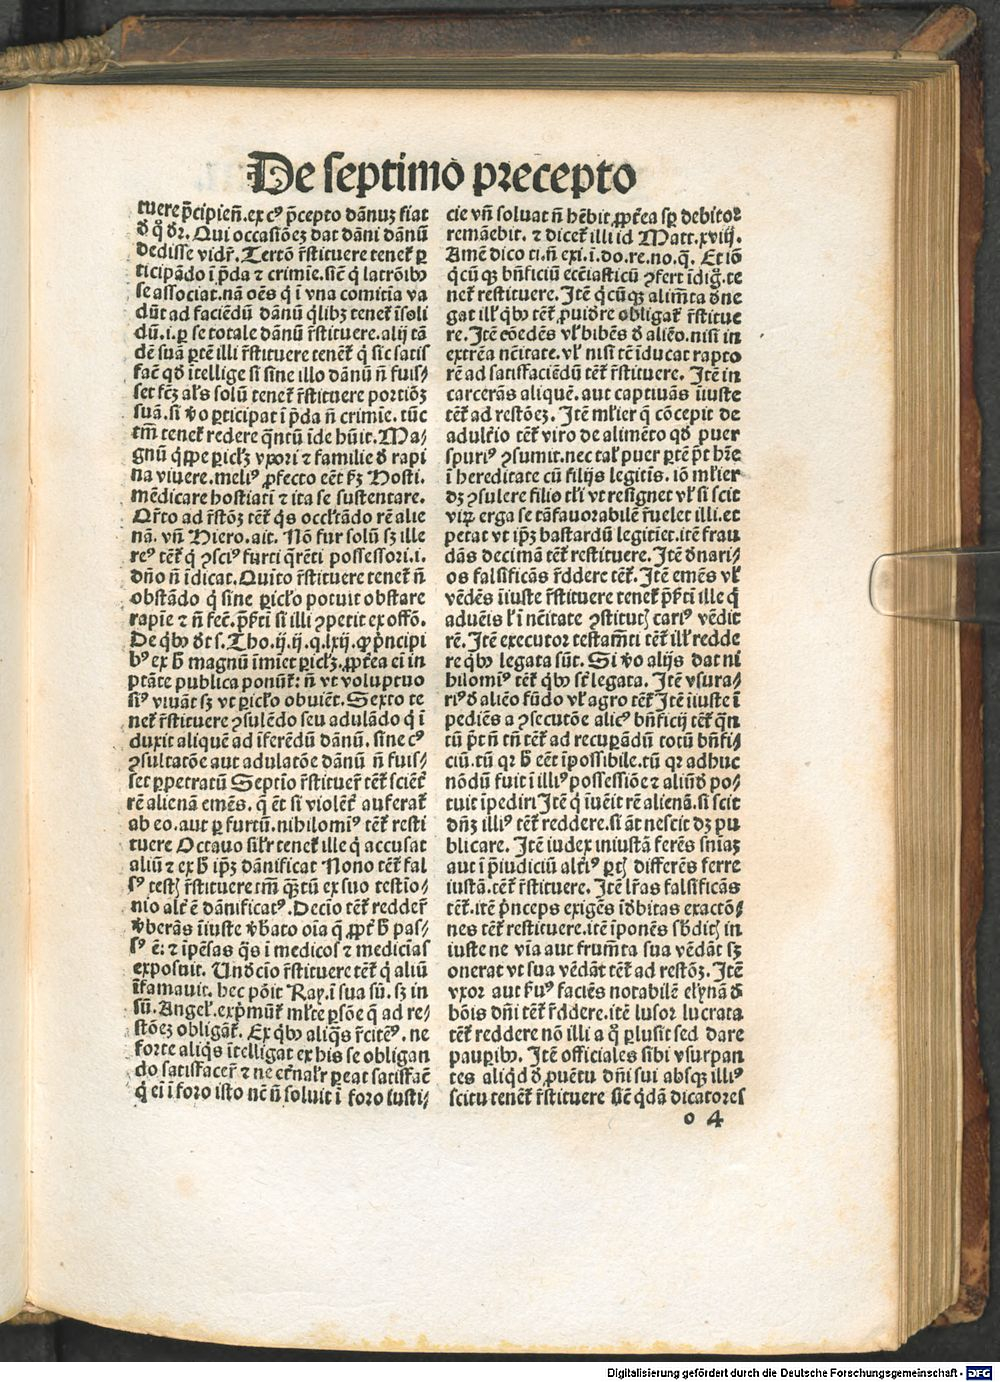 De septimo p̄cepto
tuere p̄cipien̄. ex cꝰ p̄cepto dānuʒ fiat
ꝺ q̊ dr̄. Qui occasiōeʒ dat dāni dānū
dedisse vidr̄. Tertō r̄stituere tenet᷑ ꝑ
ticipādo ī p̄da ⁊ crimīe. sic̄ q̄ latrōibꝰ
se associat. nā oēs q̄ ī vna comitia va
dūt ad faciēdū dānū q̄libʒ tenet᷑ īsoli
dū. i. ꝑ se totale dānū r̄stituere. alij tā
dē suā ꝑtē illi r̄stituere tenēt᷑ q̄ sic̄ satis
fac̄ qđ ītellige si sine illo dānū n̄ fuis⸗
set fcʒ̄ al̄s solū tenet᷑ r̄stituere portiōʒ
suā. si v̊o ꝑticipat ī p̄da n̄ crimīe. tūc
tm̄ tenet᷑ redere q̄ntū īde hūit. Ma⸗
gnū q̄ꝓpe ꝑicl̄ʒ vxori ⁊ familie ꝺ rapi
na viuere. meliꝰ ꝓfecto eēt ẜʒ Hosti.
mēdicare hostiatī ⁊ ita se sustentare.
Qr̄to ad r̄stōʒ tēt᷑ q̄s occl̄tādo rē alie
nā. vn̄ Hiero. ait. Nō fur solū sʒ ille
reꝰ tēt᷑ q̄ ꝯsciꝰ furti q̄rēti possessori. i.
dn̄o n̄ īdicat. Quīto r̄stituere tenet᷑ n̄
obstādo q̄ sine ꝑicl̄o potuit obstare
rapīe ⁊ n̄ fec̄. p̄ꝑtī si illi ꝯpetit ex offō.
De q̄bꝰ ꝺt s. Tho. ij. ij. q. lxij. ꝙ p̄ncipi
bꝰ ex h̄ magnū īmiet ꝑicl̄ʒ. ꝓpt̄ea eī in
ptāte publica ponūt᷑: n̄ vt voluptuo
siꝰ viuāt sʒ vt ꝑicl̄o obuiēt. Sexto te
net᷑ r̄stituere ꝯsulēdo seu adulādo q̄ ī
duxit aliquē ad īferēdū dānū. sine cꝰ
ꝯsultatōe aut adulatōe dānū n̄ fuis⸗
set ꝑpetratū Septīo r̄stituer̄ tēt᷑ sciēt᷑
rē alienā emēs. q̄ ēt si violēt᷑ auferat᷑
ab eo. aut ꝑ furtū. nihilomiꝰ tēt᷑ resti
tuere Octauo sil̄r tenet᷑ ille q̄ accusat
aliū ⁊ ex h̄ ip̄ʒ dānificat Nono tēt᷑ fal
sꝰ testꝭ r̄stituere tm̄ qʒtū ex suo testio⸗
nio alt᷑ ē dānificatꝰ. Decīo tēt᷑ redder̄
v̊berās īiuste v̊bato oīa q̄ ꝓpt᷑ h̄ pas⸗
sꝰ ē: ⁊ īpēsas q̄s ī medicos ⁊ medicīas
exposuit. Undcīo r̄stituere tēt᷑ q̄ aliū
īfamauit. hec pōit Ray. ī sua sū. sʒ in
sū. Angel̄. exp̄mūt᷑ ml̄te ꝑsōe q̄ ad re⸗
stōeʒ obligāt᷑. Ex q̄bꝰ aliq̄s r̄citēꝰ. ne
forte aliq̄s ītelligat ex his se obligan
do satisfacer̄ ⁊ ne et᷑nal̄r ꝑeat satisfac̄
q̄ eī ī foro isto nē n̄ soluit ī foro iusti⸗
cie vn̄ soluat n̄ hēbit ꝓpt̄ea sꝑ debitoꝛ
remāebit. ⁊ dicet᷑ illi id Matt. xviij.
Amē dico ti. n̄ exi. ī. do. re. no. q̄. Et iō
q̄cū qʒ bn̄ficiū ecc̄iasticū ꝯfert īdig̊. te
net᷑ restituere. Itē q̄cūqʒ alim̄ta ꝺne
gat ill̄ q̄bꝰ tēt᷑ ꝓuidr̄e obligat᷑ r̄stitue
re. Itē cōedēs vl̄ bibēs ꝺ aliēo. nisi in
extrēa nēitate. vl̄ nisi tē īducat rapto
rē ad satisfaciēdū tēt᷑ r̄stituere. Itē in
carcerās aliquē. aut captiuās īiuste
tēt᷑ ad restōeʒ. Itē ml̄ier q̄ cōcepit de
adult̄io tēt᷑ viro de alimēto qđ puer
spuriꝰ ꝯsumit. nec tal̄ puer ꝑtē p̄t hr̄e
ī hereditate cū filijs legitīs. iō ml̄ier
dʒ ꝯsulere filio tl̄i vt resignet vl̄ si scit
virꝝ erga se tāfauorabilē r̄uelet illi. et
petat vt ip̄ʒ bastardū legitīet. itē frau
dās decimā tēt᷑ restituere. Itē ꝺnari⸗
os falsificās r̄ddere tēt᷑. Itē emēs vl̄
vēdēs īiuste r̄stituere tenet᷑ p̄ꝑtī ille q̄
aduēis l̄ ī nēitate ꝯstitutꝭ cariꝰ vēdit
rē. Itē executor testam̄ti tēt᷑ ill̄ redde
re q̄bꝰ legata sūt. Si v̊o alijs dat ni
hilomiꝰ tēt᷑ q̄bꝰ st̄ legata. Itē vsura⸗
riꝰ ꝺ aliēo fūdo vl̄ agro tēt᷑ Itē īiuste ī
pediēs a ꝯsecutōe alicꝰ bn̄ficij tēt᷑ q̄n
tū p̄t n̄ tn̄ tēt᷑ ad recuꝑādū totū bn̄fi⸗
ciū. tū qꝛ h̄ eēt īpossibile. tū qꝛ adhuc
nōdū fuit ī illiꝰ possessiōe ⁊ aliūꝺ po⸗
tuit īpediri Itē q̄ īuēit rē alienā. si scit
dn̄ʒ illiꝰ tēt᷑ reddere. si āt nescit dʒ pu
blicare. Itē iudex iniustā ferēs sniāʒ
aut ī p̄iudiciū alt᷑iꝰ ꝑtꝭ differēs ferre
iustā. tēt᷑ r̄stituere. Itē lr̄as falsificās
tēt᷑. itē p̄nceps exigēs īꝺbitas exactō⸗
nes tēt᷑ restituere. itē īponēs sb̄ditꝭ in
iuste ne vīa aut frum̄ta sua vēdāt sʒ
onerat vt sua vēdāt tēt᷑ ad restōʒ. Itē
vxor aut ẜuꝰ faciēs notabilē elynā ꝺ
bōis dn̄i tēt᷑ r̄ddere. itē lusor lucrata
tēt᷑ reddere nō illi a q̊ ꝑlusit sed dare
pauꝑibꝰ. Itē officiales sibi vsurpan
tes aliq̄d ꝺ ꝓuētu dn̄i sui absqʒ illiꝰ
scitu tenet᷑ r̄stituere sic̄ q̄dā dicatores
o 4
Digitalisierung gefördert durch die Deutsche Forschungsgemeinschaft - DFG